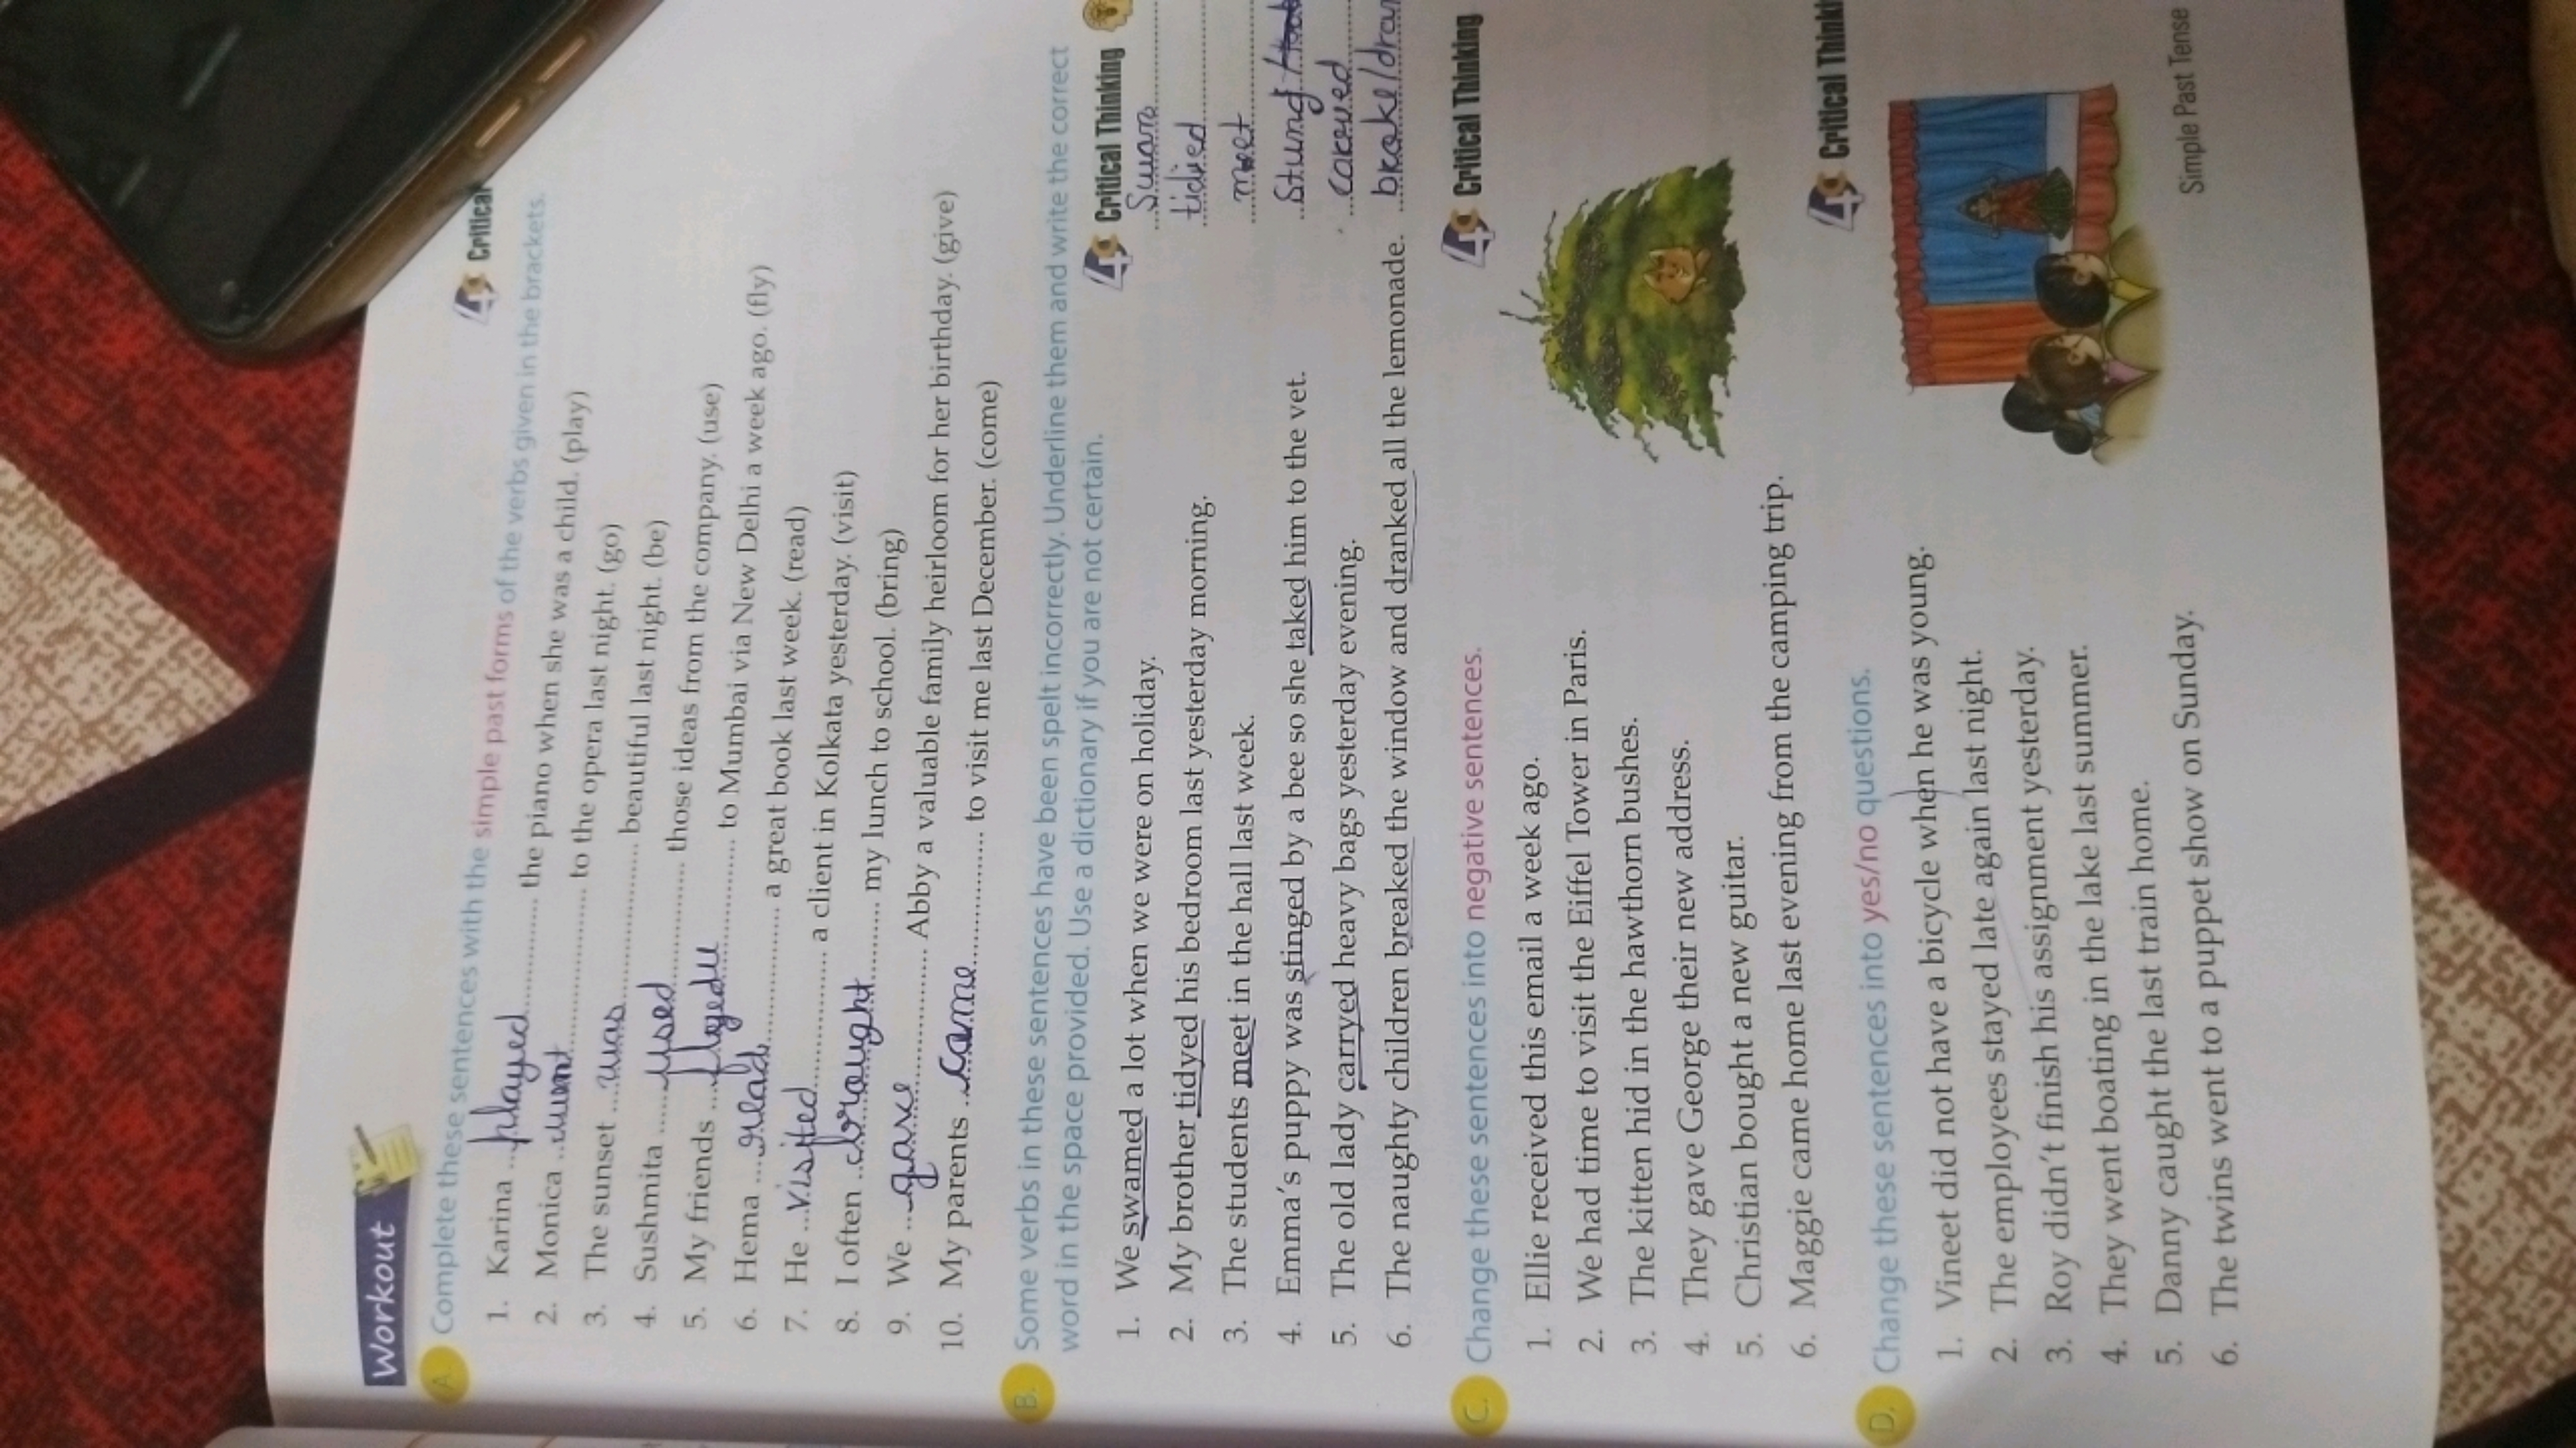 Workout
A Complete these sentences with the simple past forms of the verbs given in the brackets.
4C Critical
1. Karina ...played... the piano when she was a child. (play)
2. Monica ...went... to the opera last night. (go)
3. The sunset ...was... beautiful last night. (be)
4. Sushmita ...used... those ideas from the company. (use)
5. My friends ... to Mumbai via New Delhi a week ago. (fly)
6. Hema ...read... a great book last week. (read)
7. He ...visited... a client in Kolkata yesterday. (visit)
8. I often ...brought... my lunch to school. (bring)
9. We ...gave... Abby a valuable family heirloom for her birthday. (give)
10. My parents ...came... to visit me last December. (come)
B. Some verbs in these sentences have been spelt incorrectly. Underline them and write the correct
word in the space provided. Use a dictionary if you are not certain.
4C Critical Thinking
1. We swamed a lot when we were on holiday. ...Swam...
2. My brother tidyed his bedroom last yesterday morning. tidied
3. The students meet in the hall last week. ...met...
4. Emma's puppy was stinged by a bee so she taked him to the vet. Stung /
5. The old lady carryed heavy bags yesterday evening. carried
6. The naughty children breaked the window and dranked all the lemonade. broke/dran
C. Change these sentences into negative sentences.
4C Critical Thinking
1. Ellie received this email a week ago.
2. We had time to visit the Eiffel Tower in Paris.
3. The kitten hid in the hawthorn bushes.
4. They gave George their new address.
5. Christian bought a new guitar.
6. Maggie came home last evening from the camping trip.
D. Change these sentences into yes/no questions.
4C Critical Thinki
1. Vineet did not have a bicycle when he was young.
2. The employees stayed late again last night.
3. Roy didn't finish his assignment yesterday.
4. They went boating in the lake last summer.
5. Danny caught the last train home.
6. The twins went to a puppet show on Sunday.
Simple Past Tense